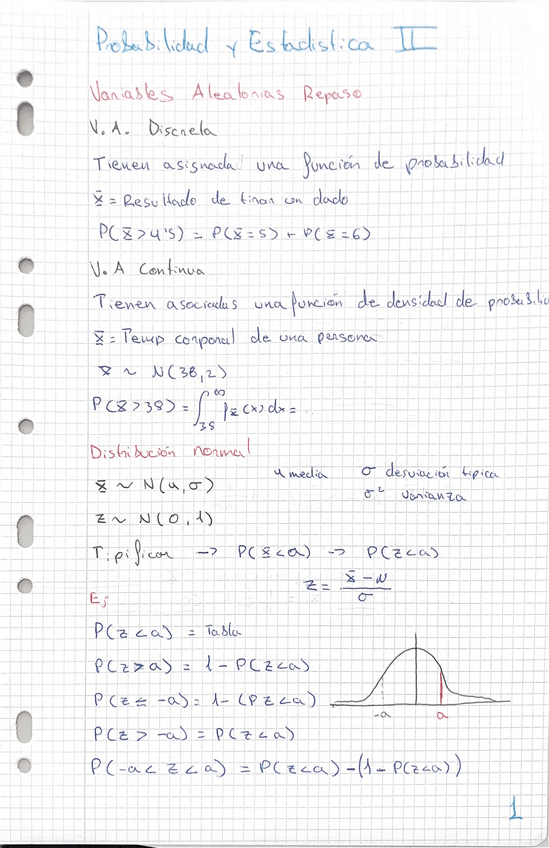 Probabilidad y Estadistica II
Variables Aleatorias Repaso
V.A. Discreta
Tienen asignada una función de probabilidad
x̄ = Resultado de tirar un dado
P(x̄ > 4'5) = P(x̄ = 5) + P(x̄ = 6)
V.A Continua
Tienen asociadas una función de densidad de probabilid
x̄ = Temp corporal de una persona
x̄ ~ N(38,2)
P(x̄ > 38) = ∫₃₈^∞ f x̄ (x) dx =
Distribución normal
x̄ ~ N(u, σ) u media σ desviación típica
σ² varianza
z ~ N(0,1)
Tipificar -> P(x̄ < a) -> P(z < a)
z = (x̄ - N) / σ
Ej
P(z < a) = Tabla
P(z > a) = 1 - P(z < a)
P(z ≤ -a) = 1 - (P z < a)
P(z > -a) = P(z < a)
-a a
P(-a < z < a) = P(z < a) - (1 - P(z < a))
1